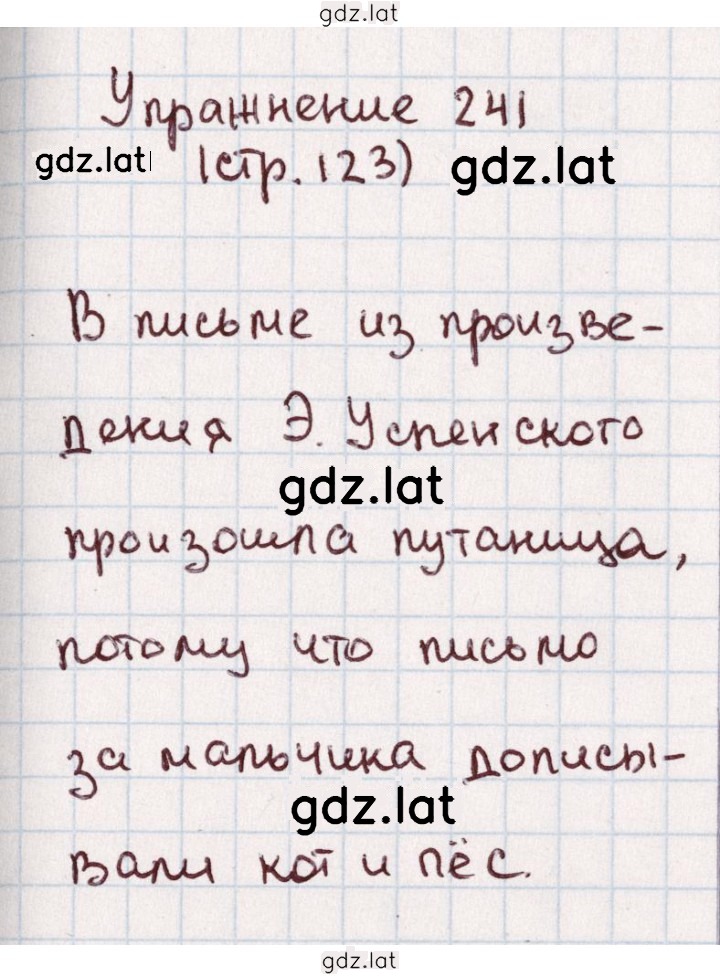 gdz.lat
Упражнение 241
gdz.lat (стр. 123) gdz.lat
В письме из произве-
дения Э. Успенского
gdz.lat
произошла путаница,
потому что письмо
за мальчика дописы-
gdz.lat
вали кот и пёс.
gdz.lat